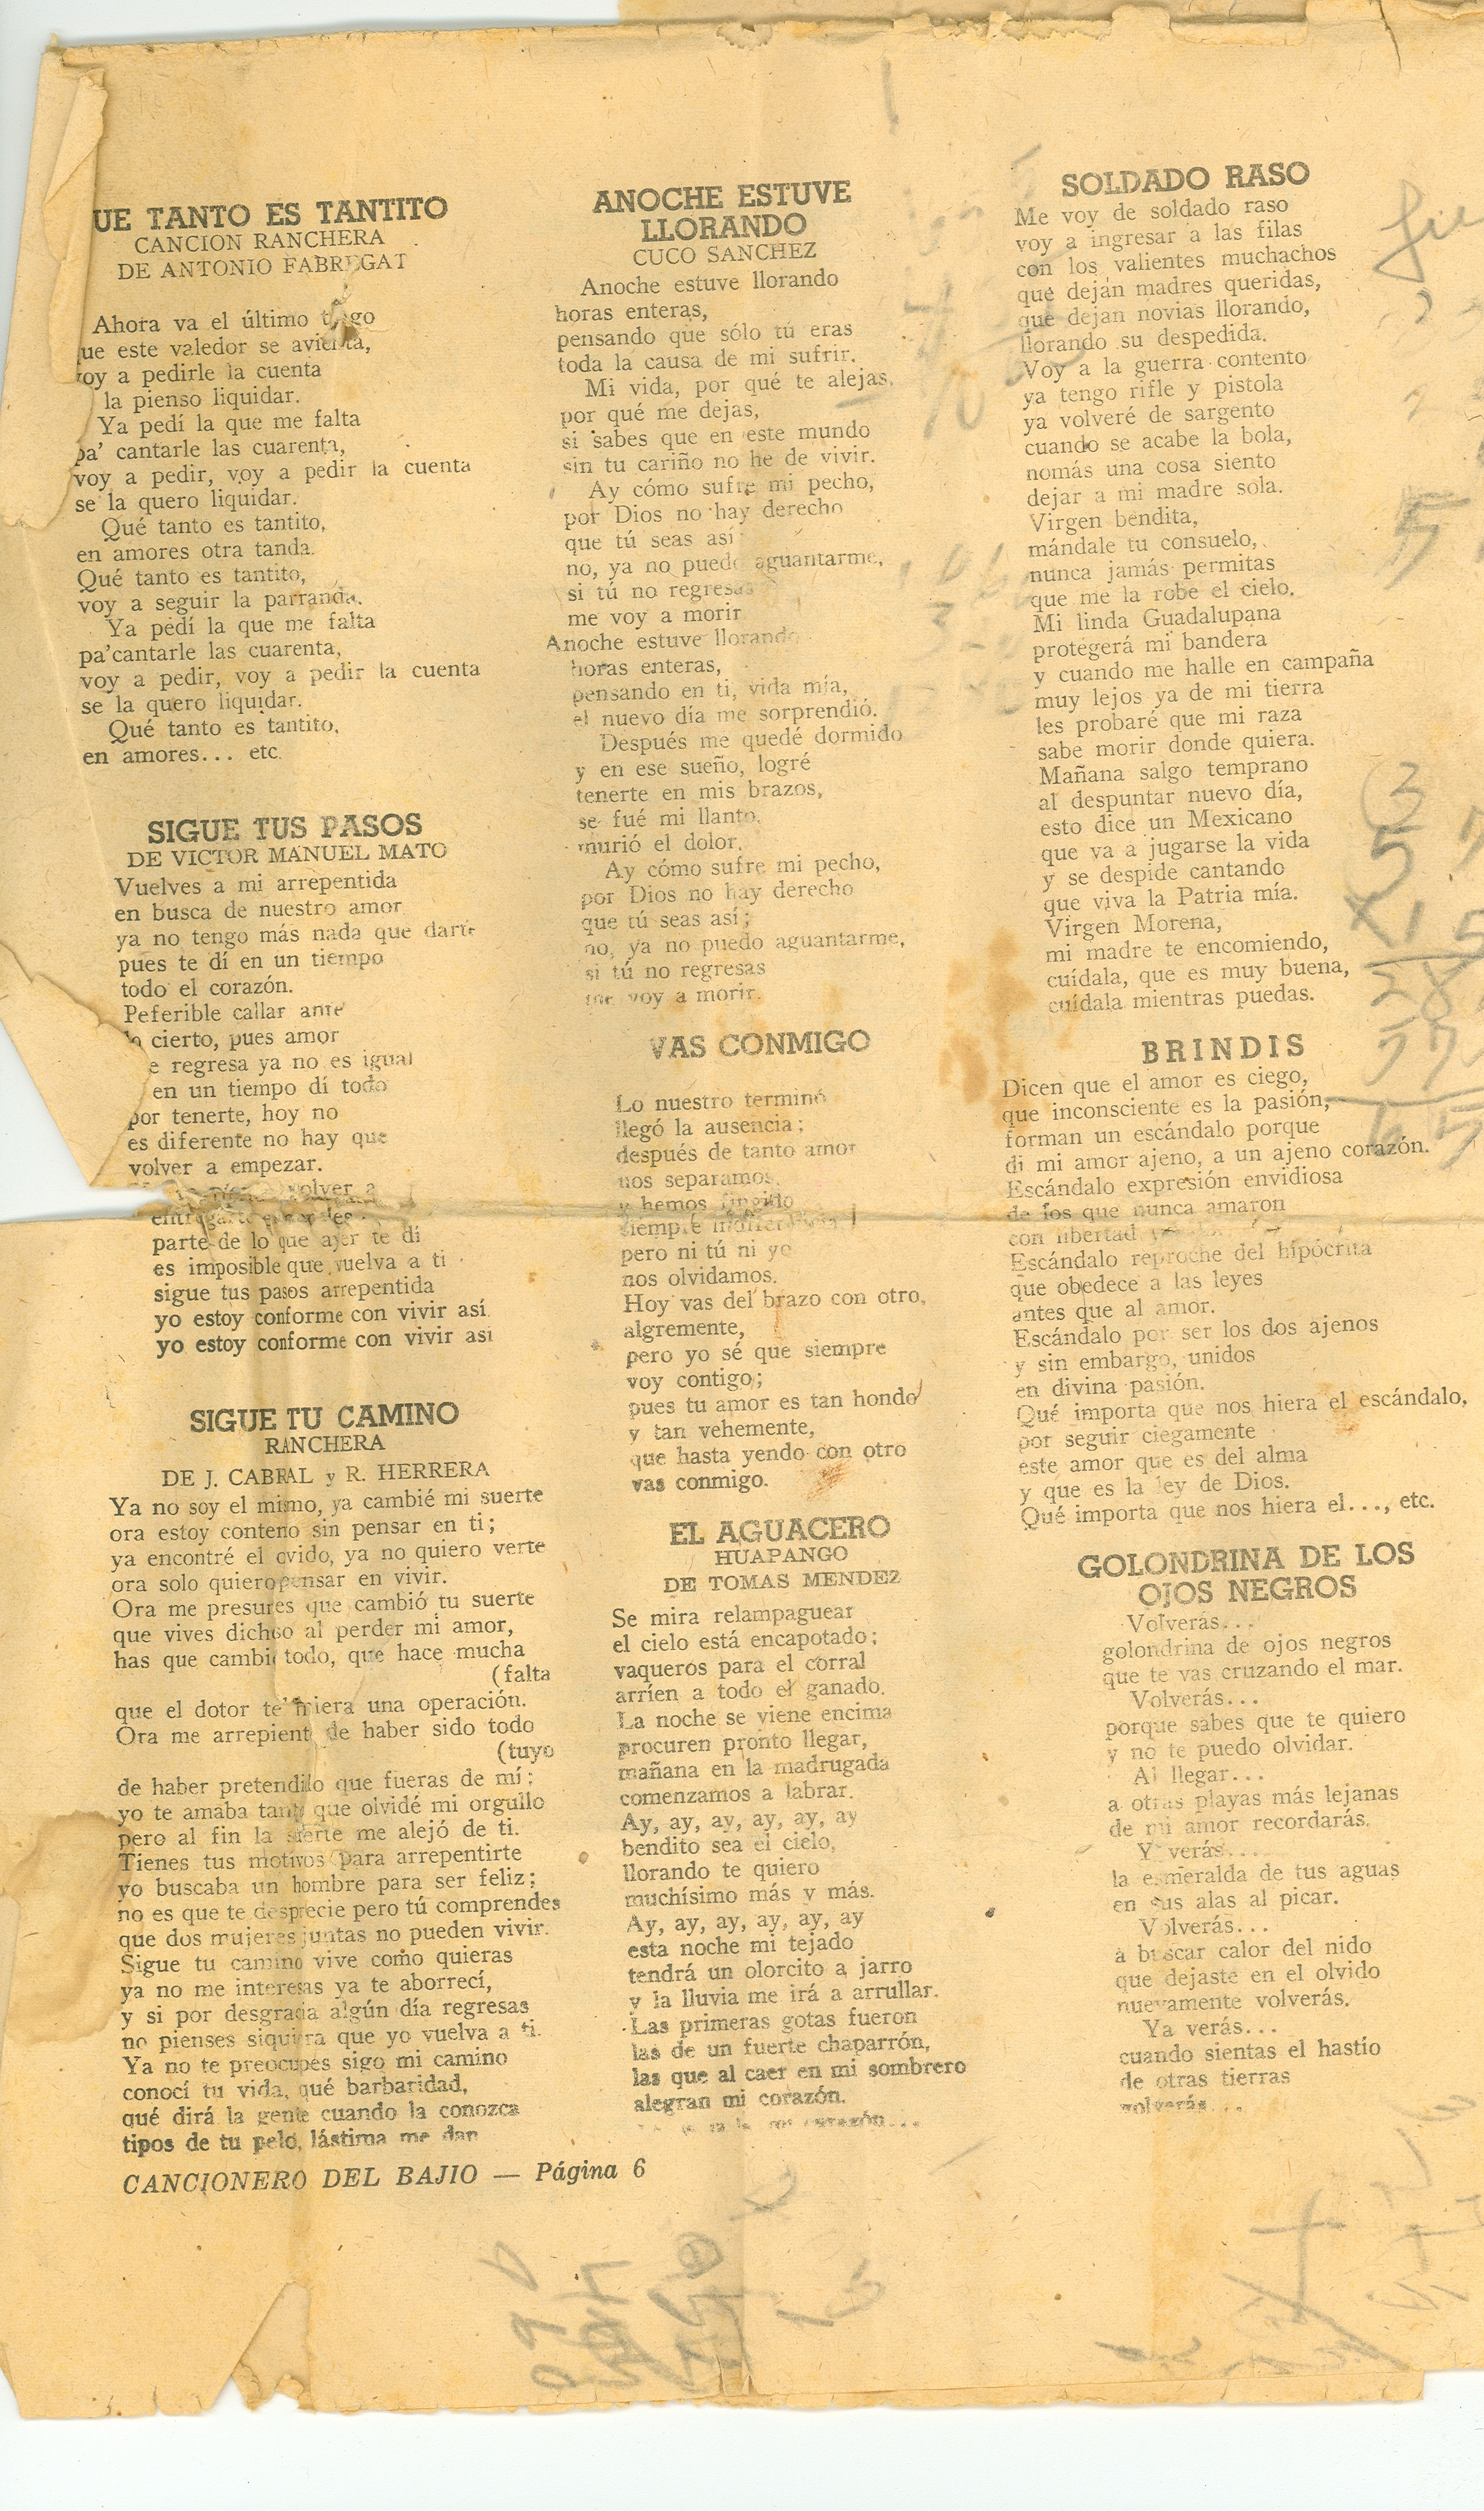 UE TANTO ES TANTITO
CANCION RANCHERA
DE ANTONIO FABREGAT
Ahora va el último
ue este valedor se
oy a pedirle la cuenta
la pienso liquidar.
Ya pedí la que me falta
pa' cantarle las cuarenta,
voy a pedir, voy a pedir la cuenta
se la quero liquidar.
Qué tanto es tantito,
en amores otra tanda.
Qué tanto es tantito,
voy a seguir la parranda.
Ya pedí la que me falta
pa'cantarle las cuarenta,
voy a pedir, voy a pedir la cuenta
se la quero liquidar.
Qué tanto es tantito,
en amores... etc.
SIGUE TUS PASOS
DE VICTOR MANUEL MATO
Vuelves a mi arrepentida
en busca de nuestro amor
ya no tengo más nada que darte
pues te dí en un tiempo
todo el corazón.
Peferible callar ante
lo cierto, pues amor
e regresa ya no es igual
en un tiempo dí todo
por tenerte, hoy no
es diferente no hay que
volver a empezar.
volver a
parte de lo que ayer te dí
es imposible que vuelva a ti
sigue tus pasos arrepentida
yo estoy conforme con vivir así
yo estoy conforme con vivir así
SIGUE TU CAMINO
RANCHERA
DE J. CABRAL y R. HERRERA
Ya no soy el mimo, ya cambié mi suerte
ora estoy conteno sin pensar en ti;
ya encontré el ovido, ya no quiero verte
ora solo quiero pensar en vivir.
Ora me presures que cambió tu suerte
que vives dichoo al perder mi amor,
has que cambi todo, que hace mucha
(falta
que el dotor te hiciera una operación.
Ora me arrepient de haber sido todo
(tuyo
de haber pretendido que fueras de mí;
yo te amaba tant que olvidé mi orgullo
pero al fin la suerte me alejó de ti.
Tienes tus motivos para arrepentirte
yo buscaba un hombre para ser feliz;
no es que te desprecie pero tú comprendes
que dos mujeres juntas no pueden vivir.
Sigue tu camino vive como quieras
ya no me interesas ya te aborrecí,
y si por desgracia algún día regresas
no pienses siquiera que yo vuelva a ti.
Ya no te preocupes sigo mi camino
conocí tu vida, qué barbaridad,
qué dirá la gente cuando la conozca
tipos de tu pelo, lástima me dan
CANCIONERO DEL BAJIO — Página 6
ANOCHE ESTUVE
LLORANDO
CUCO SANCHEZ
Anoche estuve llorando
horas enteras,
pensando que sólo tú eras
toda la causa de mi sufrir.
Mi vida, por qué te alejas,
por qué me dejas,
si sabes que en este mundo
sin tu cariño no he de vivir.
Ay cómo sufre mi pecho,
por Dios no hay derecho
que tú seas así
no, ya no puedo aguantarme,
si tú no regresas
me voy a morir
Anoche estuve llorando
horas enteras,
pensando en ti, vida mía,
el nuevo día me sorprendió.
Después me quedé dormido
y en ese sueño, logré
tenerte en mis brazos,
se fué mi llanto,
murió el dolor.
Ay cómo sufre mi pecho,
por Dios no hay derecho
que tú seas así;
no, ya no puedo aguantarme,
si tú no regresas
me voy a morir.
VAS CONMIGO
Lo nuestro terminó
llegó la ausencia;
después de tanto amor
nos separamos,
y hemos fingido
siempre
pero ni tú ni yo
nos olvidamos.
Hoy vas del brazo con otro,
algremente,
pero yo sé que siempre
voy contigo;
pues tu amor es tan hondo
y tan vehemente,
que hasta yendo con otro
vas conmigo.
EL AGUACERO
HUAPANGO
DE TOMAS MENDEZ
Se mira relampaguear
el cielo está encapotado;
vaqueros para el corral
arríen a todo el ganado.
La noche se viene encima
procuren pronto llegar,
mañana en la madrugada
comenzamos a labrar.
Ay, ay, ay, ay, ay, ay
bendito sea el cielo,
llorando te quiero
muchísimo más y más.
Ay, ay, ay, ay, ay, ay
esta noche mi tejado
tendrá un olorcito a jarro
y la lluvia me irá a arrullar.
Las primeras gotas fueron
las de un fuerte chaparrón,
las que al caer en mi sombrero
alegran mi corazón.
mi corazón...
SOLDADO RASO
Me voy de soldado raso
voy a ingresar a las filas
con los valientes muchachos
que dejan madres queridas,
que dejan novias llorando,
llorando su despedida.
Voy a la guerra contento
ya tengo rifle y pistola
ya volveré de sargento
cuando se acabe la bola,
nomás una cosa siento
dejar a mi madre sola.
Virgen bendita,
mándale tu consuelo,
nunca jamás permitas
que me la robe el cielo.
Mi linda Guadalupana
protegerá mi bandera
y cuando me halle en campaña
muy lejos ya de mi tierra
les probaré que mi raza
sabe morir donde quiera.
Mañana salgo temprano
al despuntar nuevo día,
esto dice un Mexicano
que va a jugarse la vida
y se despide cantando
que viva la Patria mía.
Virgen Morena,
mi madre te encomiendo,
cuídala, que es muy buena,
cuídala mientras puedas.
BRINDIS
Dicen que el amor es ciego,
que inconsciente es la pasión,
forman un escándalo porque
di mi amor ajeno, a un ajeno corazón.
Escándalo expresión envidiosa
de los que nunca amaron
con libertad
Escándalo reproche del hipócrita
que obedece a las leyes
antes que al amor.
Escándalo por ser los dos ajenos
y sin embargo, unidos
en divina pasión.
Qué importa que nos hiera el escándalo,
por seguir ciegamente
este amor que es del alma
y que es la ley de Dios.
Qué importa que nos hiera el..., etc.
GOLONDRINA DE LOS
OJOS NEGROS
Volverás...
golondrina de ojos negros
que te vas cruzando el mar.
Volverás...
porque sabes que te quiero
y no te puedo olvidar.
Al llegar...
a otras playas más lejanas
de mi amor recordarás.
Y verás...
la esmeralda de tus aguas
en sus alas al picar.
Volverás...
a buscar calor del nido
que dejaste en el olvido
nuevamente volverás.
Ya verás...
cuando sientas el hastío
de otras tierras
volverás...
3
57
X15